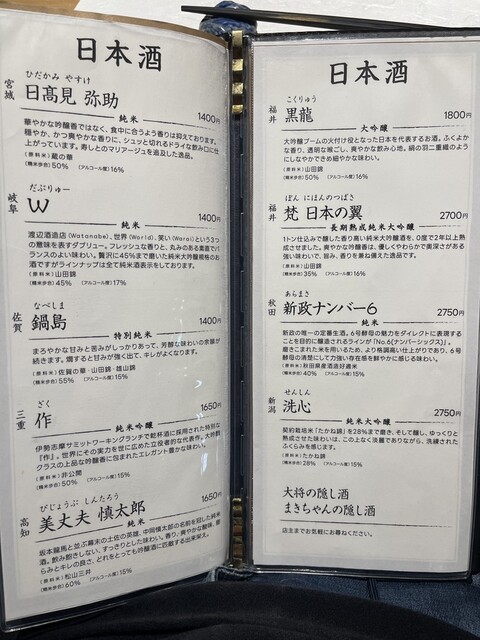 日本酒
宮城
ひだかみ やすけ
日髙見 弥助
純米 1400円
華やかな吟醸香ではなく、食中に合うよう香りは抑えております。
穏やか、かつ爽やかな香りに、シュッと切れるドライな飲み口に仕
上がっています。寿しとのマリアージュを追及した逸品。
(原料米)蔵の華
(精米歩合)50% (アルコール度)16%
岐阜
だぶりゅー
W
純米 1400円
渡辺酒造店(Watanabe)、世界(World)、笑い(Warai)という3つ
の意味を表すダブリュー。フレッシュな香りと、丸みのある素直でバ
ランスのよい味わい。贅沢に45%まで磨いた純米大吟醸規格のお
酒ですがラインナップは全て純米酒表示をしております。
(原料米)山田錦
(精米歩合)45% (アルコール度)17%
佐賀
なべしま
鍋島
特別純米 1400円
まろやかな甘みと苦みがしっかりあって、芳醇な味わいの余韻が
続きます。燗すると甘みが強く出て、キレがよくなります。
(原料米)佐賀の華・山田錦・雄山錦
(精米歩合)55% (アルコール度)15%
三重
ざく
作
純米吟醸 1650円
伊勢志摩サミットワーキングランチで乾杯酒に採用された特別な
「作」。世界にその実力を世に広めた立役者的な代表作。大吟醸
クラスの上品な吟醸香に包まれたエレガント豊かな味わい。
(原料米)非公開
(精米歩合)50% (アルコール度)15%
高知
びじょうぶ しんたろう
美丈夫 慎太郎
純米 1650円
坂本龍馬と並ぶ幕末の土佐の英雄、中岡慎太郎の名前を冠した純米
酒。飲み飽きしない、すっきりとした味わい。香り、爽やかな酸味、膨
らみとキレの良さ、どれをとっても吟醸酒に匹敵する出来栄え。
(原料米)松山三井
(精米歩合)60% (アルコール度)15%
日本酒
福井
こくりゅう
黒龍
大吟醸 1800円
吟醸酒ブームの火付け役となった日本を代表するお酒。ふくよか
な香り、透明な喉ごし、爽やかな飲み心地。絹の羽二重織のよう
にしなやかできめ細やかな味わい。
(原料米)山田錦
(精米歩合)50% (アルコール度)16%
福井
ぼん にほんのつばさ
梵 日本の翼
長期熟成純米大吟醸 2700円
1トン仕込みで醸した香り高い純米大吟醸酒を、0度で2年以上熟
成させました。爽やかな吟醸香は、優しくやわらかで奥深さがある
強い味わいで、旨み、香りを兼ね備えた逸品です。
(原料米)山田錦
(精米歩合)35% (アルコール度)16%
秋田
あらまさ
新政ナンバー6
純米 2750円
新政の唯一の定番生酒。6号酵母の魅力をダイレクトに表現する
ことを目的に醸造されるラインが「No.6(ナンバーシックス)」。
磨きこまれた米を用いるため、より格調高い仕上がりであり、6号
酵母の清楚にして力強い存在感を鮮やかに感じる味わい。
(原料米)秋田県産酒造好適米
(精米歩合)40% (アルコール度)15%
新潟
せんしん
洗心
純米大吟醸 2750円
契約栽培米「たかね錦」を28%まで磨き、そして醸し、ゆっくりと
熟成させた味わいは、この上なく淡麗でありながら、洗練された
ふくらみを感じます。
(原料米)たかね錦
(精米歩合)28% (アルコール度)15%
大将の隠し酒
まきちゃんの隠し酒
店主までお気軽にお尋ねください。